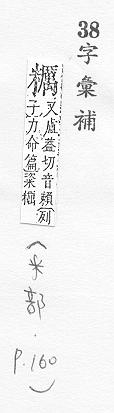 38字彙補
糲 又盧蓋切音賴列
子力命篇粢糲
(米部.p.160)